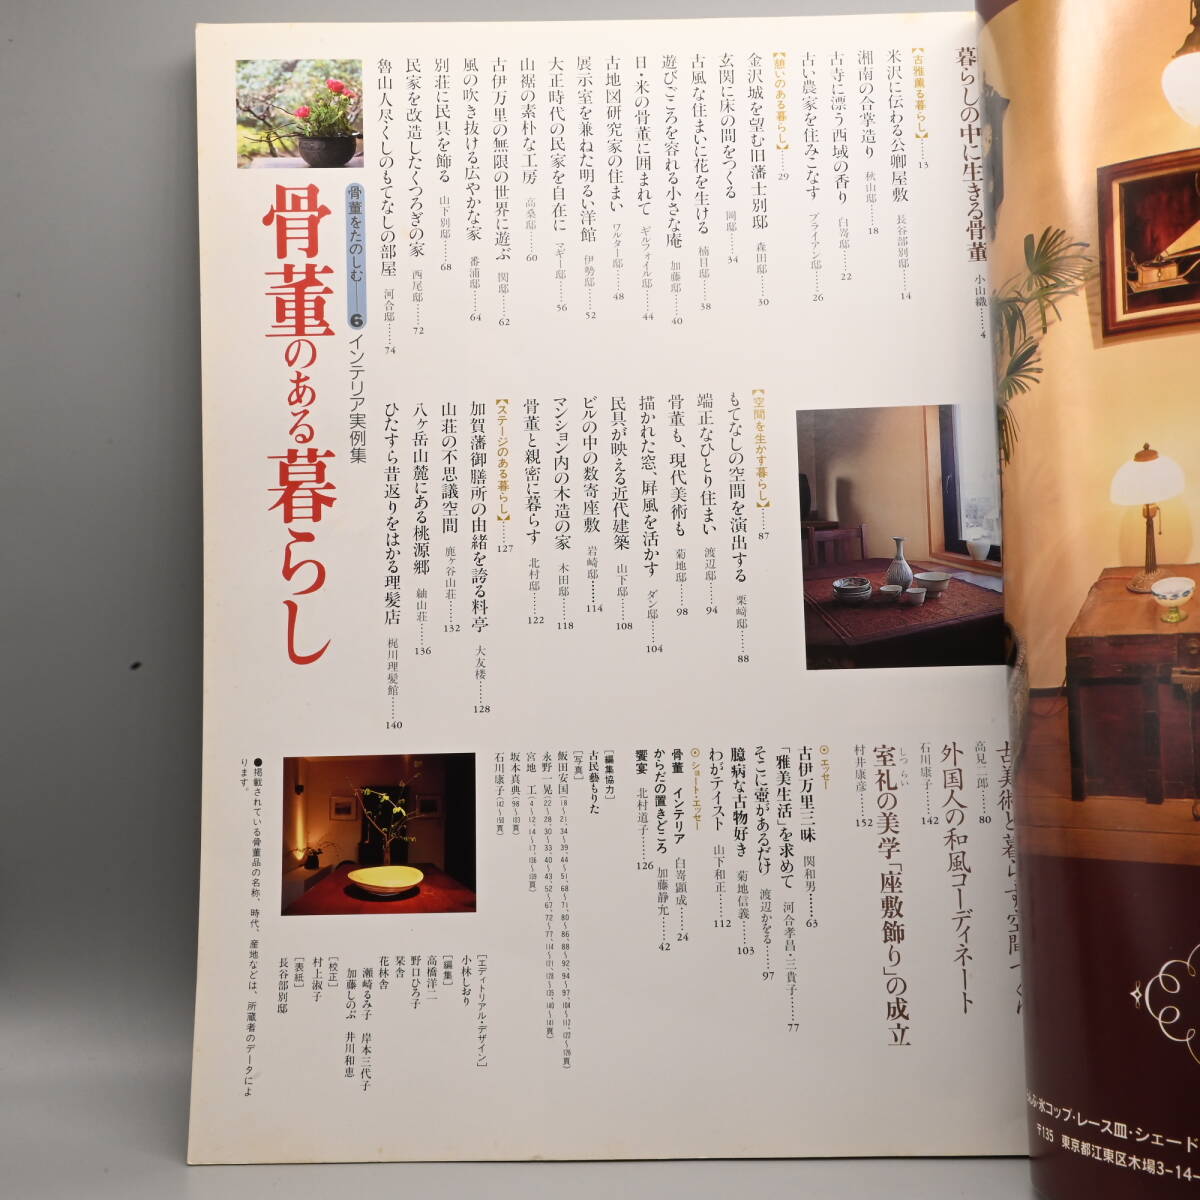 骨董をたのしむ──6
インテリア実例集
骨董のある暮らし
暮らしの中に生きる骨董 小山織……4
【古雅薫る暮らし】……13
米沢に伝わる公卿屋敷 長谷部別邸……14
湘南の合掌造り 秋山邸……18
古寺に漂う西域の香り 白嵜邸……22
古い農家を住みこなす ブライアン邸……26
【憩いのある暮らし】……29
金沢城を望む旧藩士別邸 森田邸……30
玄関に床の間をつくる 岡邸……34
古風な住まいに花を生ける 楠目邸……38
遊びごころを容れる小さな庵 加藤邸……40
日・米の骨董に囲まれて ギルフォイル邸……44
古地図研究家の住まい ワルター邸……48
展示室を兼ねた明るい洋館 伊勢邸……52
大正時代の民家を自在に マギー邸……56
山裾の素朴な工房 高桑邸……60
古伊万里の無限の世界に遊ぶ 関邸……62
風の吹き抜ける広やかな家 番浦邸……64
別荘に民具を飾る 山下別邸……68
民家を改造したくつろぎの家 西尾邸……72
魯山人尽くしのもてなしの部屋 河合邸……74
【空間を生かす暮らし】……87
もてなしの空間を演出する 栗﨑邸……88
端正なひとり住まい 渡辺邸……94
骨董も、現代美術も 菊地邸……98
描かれた窓、屛風を活かす ダン邸……104
民具が映える近代建築 山下邸……108
ビルの中の数寄座敷 岩崎邸……114
マンション内の木造の家 木田邸……118
骨董と親密に暮らす 北村邸……122
【ステージのある暮らし】……127
加賀藩御膳所の由緒を誇る料亭 大友楼……128
山荘の不思議空間 鹿ヶ谷山荘……132
八ヶ岳山麓にある桃源郷 紬山荘……136
ひたすら昔返りをはかる理髪店 梶川理髪館……140
高見二郎……80
外国人の和風コーディネート
石川康子……142
室礼の美学「座敷飾り」の成立
しつらい
村井康彦……152
◎エッセー
古伊万里三昧 関和男……63
「雅美生活」を求めて 河合孝昌・三貴子……77
そこに壺があるだけ 渡辺かをる……97
臆病な古物好き 菊地信義……103
わがテイスト 山下和正……112
◎ショート・エッセー
骨董 インテリア 白嵜顕成……24
からだの置きどころ 加藤静允……42
饗宴 北村道子……126
[編集協力]
古民藝もりた
[写真]
飯田安国(18〜21、34〜39、44〜51、68〜71、80〜86、88〜92、94〜97、104〜112、122〜126頁)
永野一晃(22〜28、30〜33、40〜43、52〜67、72〜77、114〜121、128〜135、140〜141頁)
宮地 工(4〜12、14〜17、136〜139頁)
坂本真典(98〜103頁)
石川康子(142〜150頁)
[エディトリアル・デザイン]
小林しおり
[編集]
高橋洋二
野口ひろ子
栞舎
花林舎
瀬崎るみ子 岸本三代子
加藤しのぶ 井川和恵
[校正]
村上淑子
[表紙]
長谷部別邸
●掲載されている骨董品の名称、時代、産地などは、所蔵者のデータによ
ります。
氷コップ・レース皿・シェード
〒135 東京都江東区木場3-14-